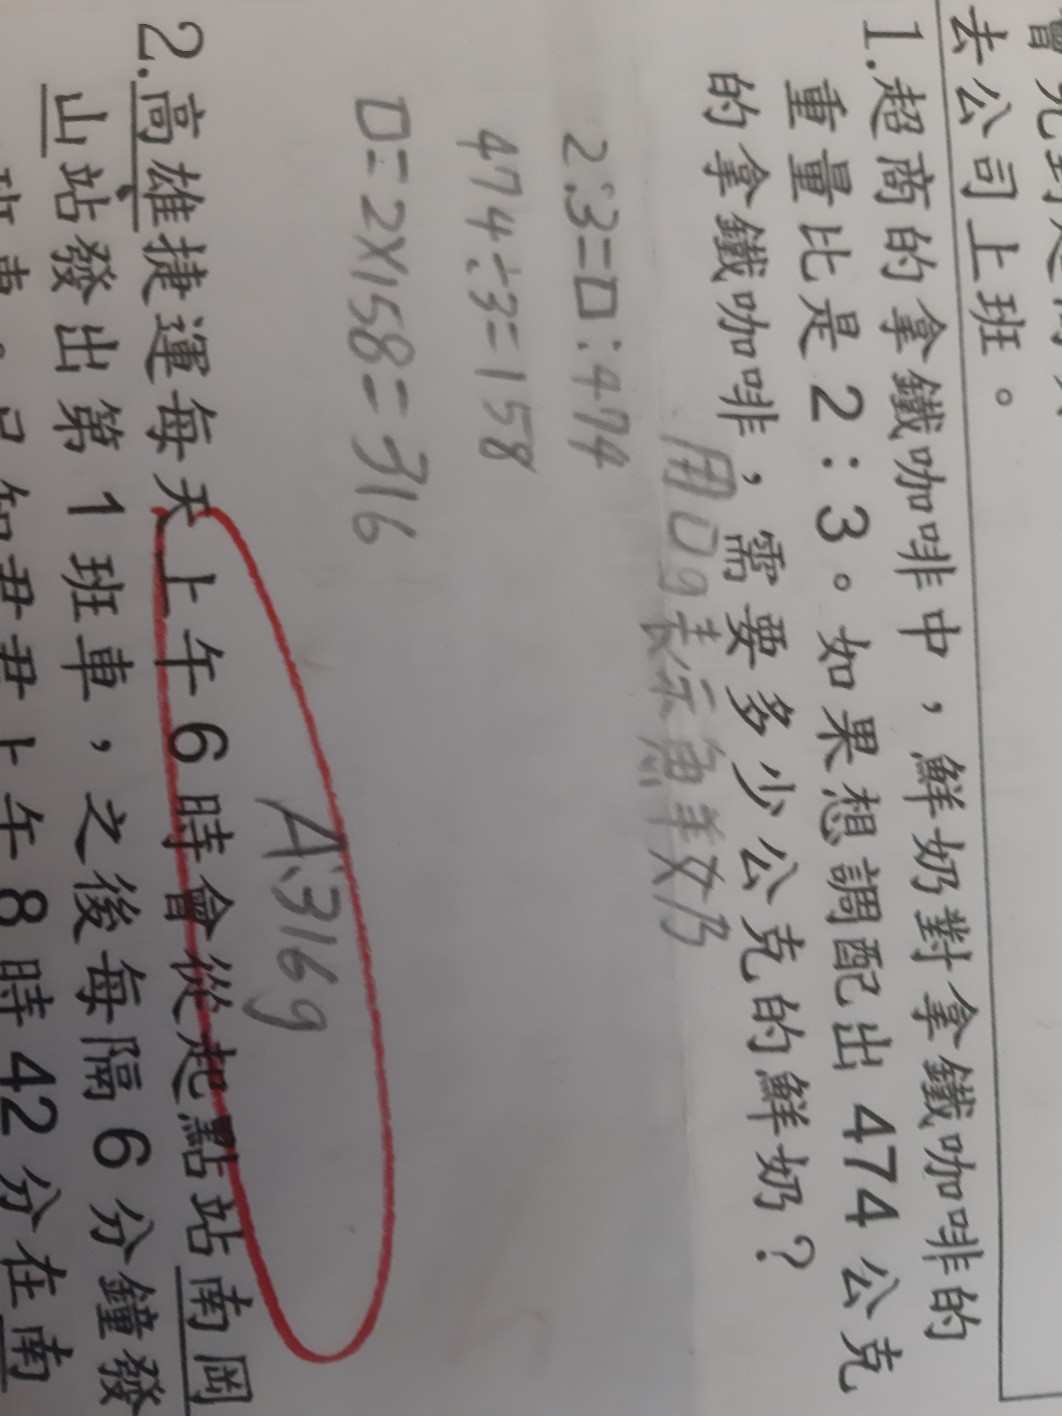 去公司上班。
1.超商的拿鐵咖啡中,鮮奶對拿鐵咖啡的
重量比是2:3。如果想調配出474公克
的拿鐵咖啡,需要多少公克的鮮奶?
用口g表示魚羊女乃
2:3=口:474
474÷3=158
口=2×158=316
A:316g
2.高雄捷運每天上午6時會從起點站南岡
山站發出第1班車,之後每隔6分鐘發
上午8時42分在南